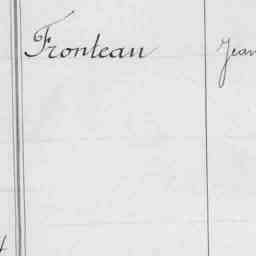 Fronteau Jean